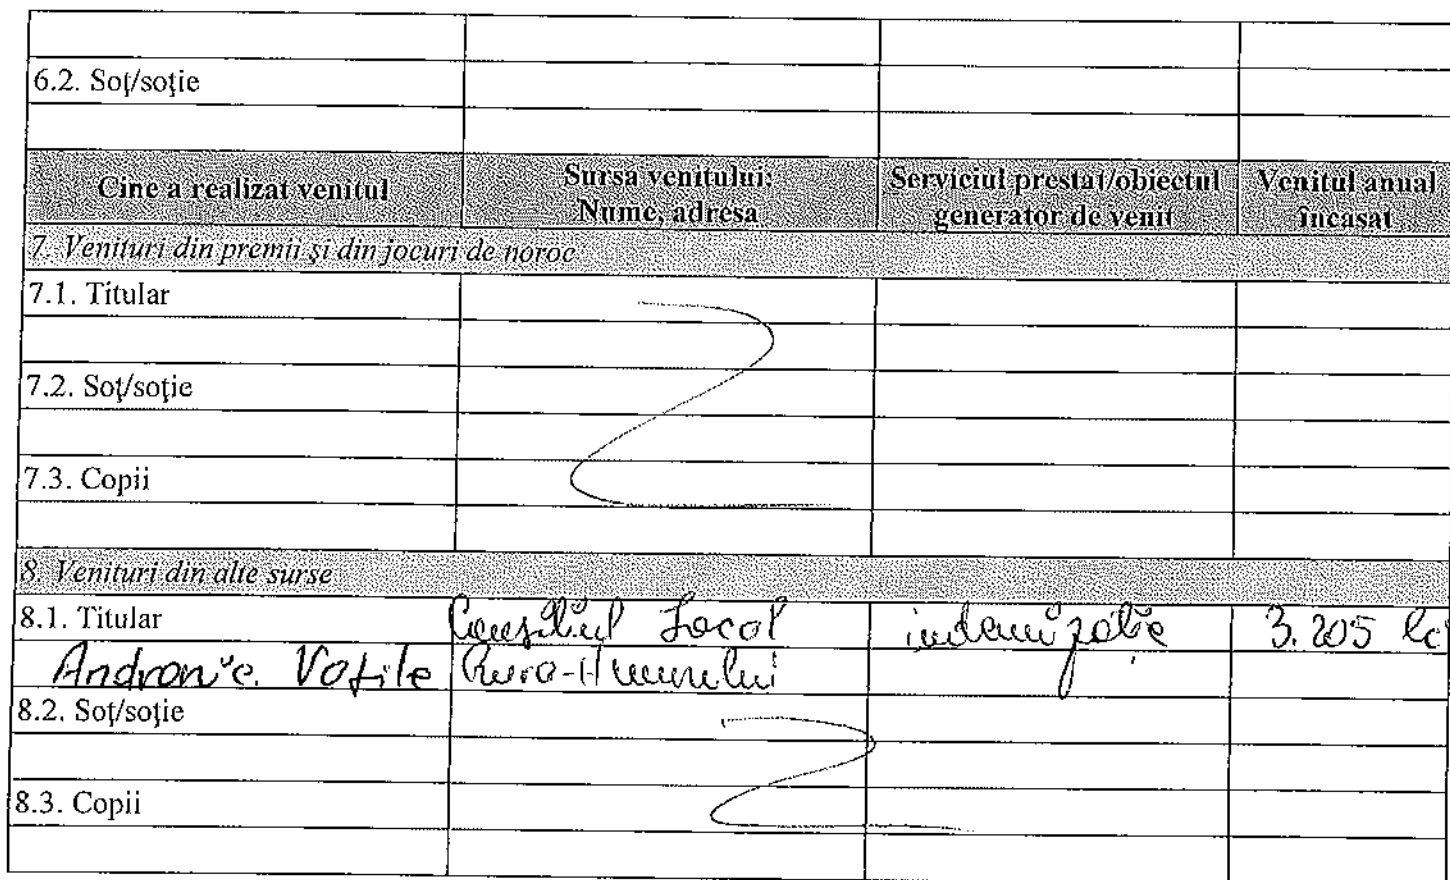 6.2. Soţ/soţie
Cine a realizat venitul
Sursa venitului:
Nume, adresa
Serviciul prestat/obiectul
generator de venit
Venitul anual
încasat
7. Venituri din premii şi din jocuri de noroc
7.1. Titular
7.2. Soţ/soţie
7.3. Copii
8. Venituri din alte surse
8.1. Titular Consiliul Local indemnizaţie 3.205 lei
Andronic Humorului
8.2. Soţ/soţie
8.3. Copii